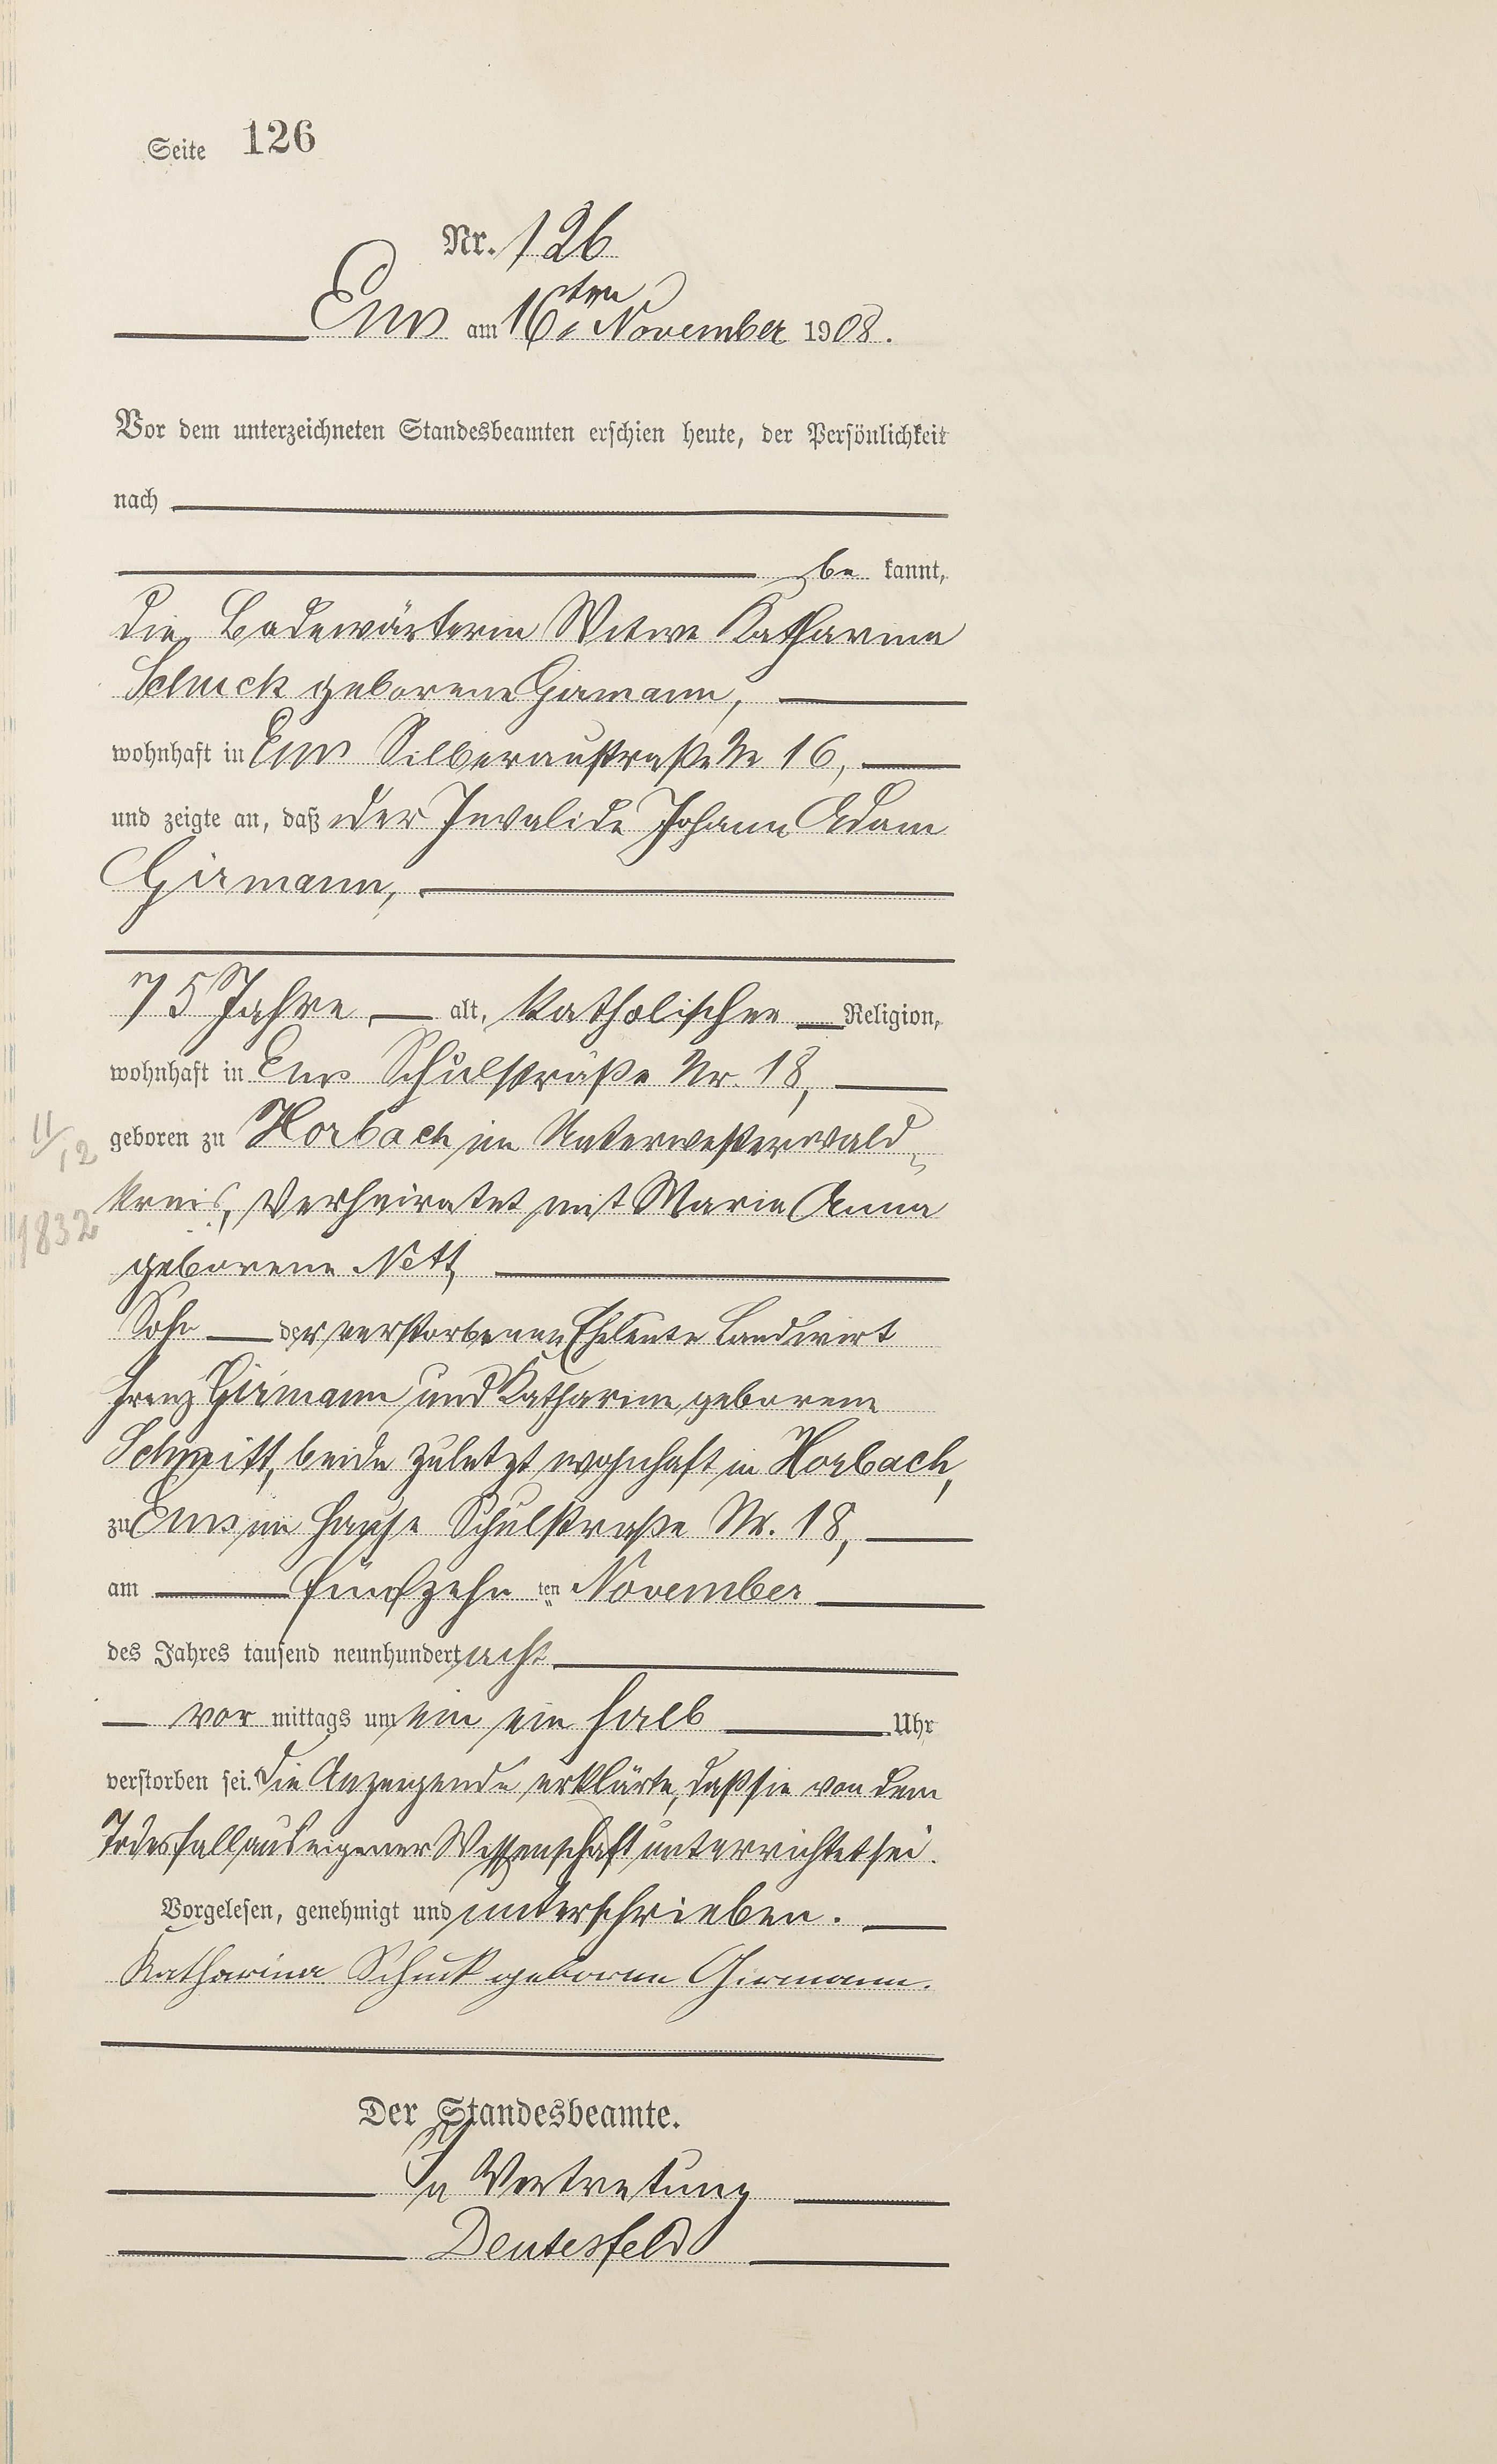 Seite 126
Nr. 126
Ems am 16ten November 1908.
Vor dem unterzeichneten Standesbeamten erschien heute, der Persönlichkeit
nach
be kannt,
die Badewärterin Witwe Katharina
Schuck geborene Girmann,
wohnhaft in Ems Silberaustraße Nr 16,
und zeigte an, daß der Invalide Johann Adam
Girmann,
75 Jahre alt, katholischer Religion,
wohnhaft in Ems Schulstraße Nr. 18,
11/12
geboren zu Horbach im Unterwesterwald-
1832
kreis, verheiratet mit Maria Anna
geborene Nett,
Sohn der verstorbenen Eheleute Landwirt
Franz Girmann und Katharina geborene
Schmitt, beide zuletzt wohnhaft in Horbach,
zu Ems im Hause Schulstraße Nr. 18,
am fünfzehn ten November
des Jahres tausend neunhundert acht
vor mittags um ein ein halb Uhr
verstorben sei. Die Anzeigende erklärte, daß sie von dem
Todesfall aus eigener Wissenschaft unterrichtet sei.
Vorgelesen, genehmigt und unterschrieben.
Katharina Schuck geborene Girmann.
Der Standesbeamte.
In Vertretung
Deutesfeld